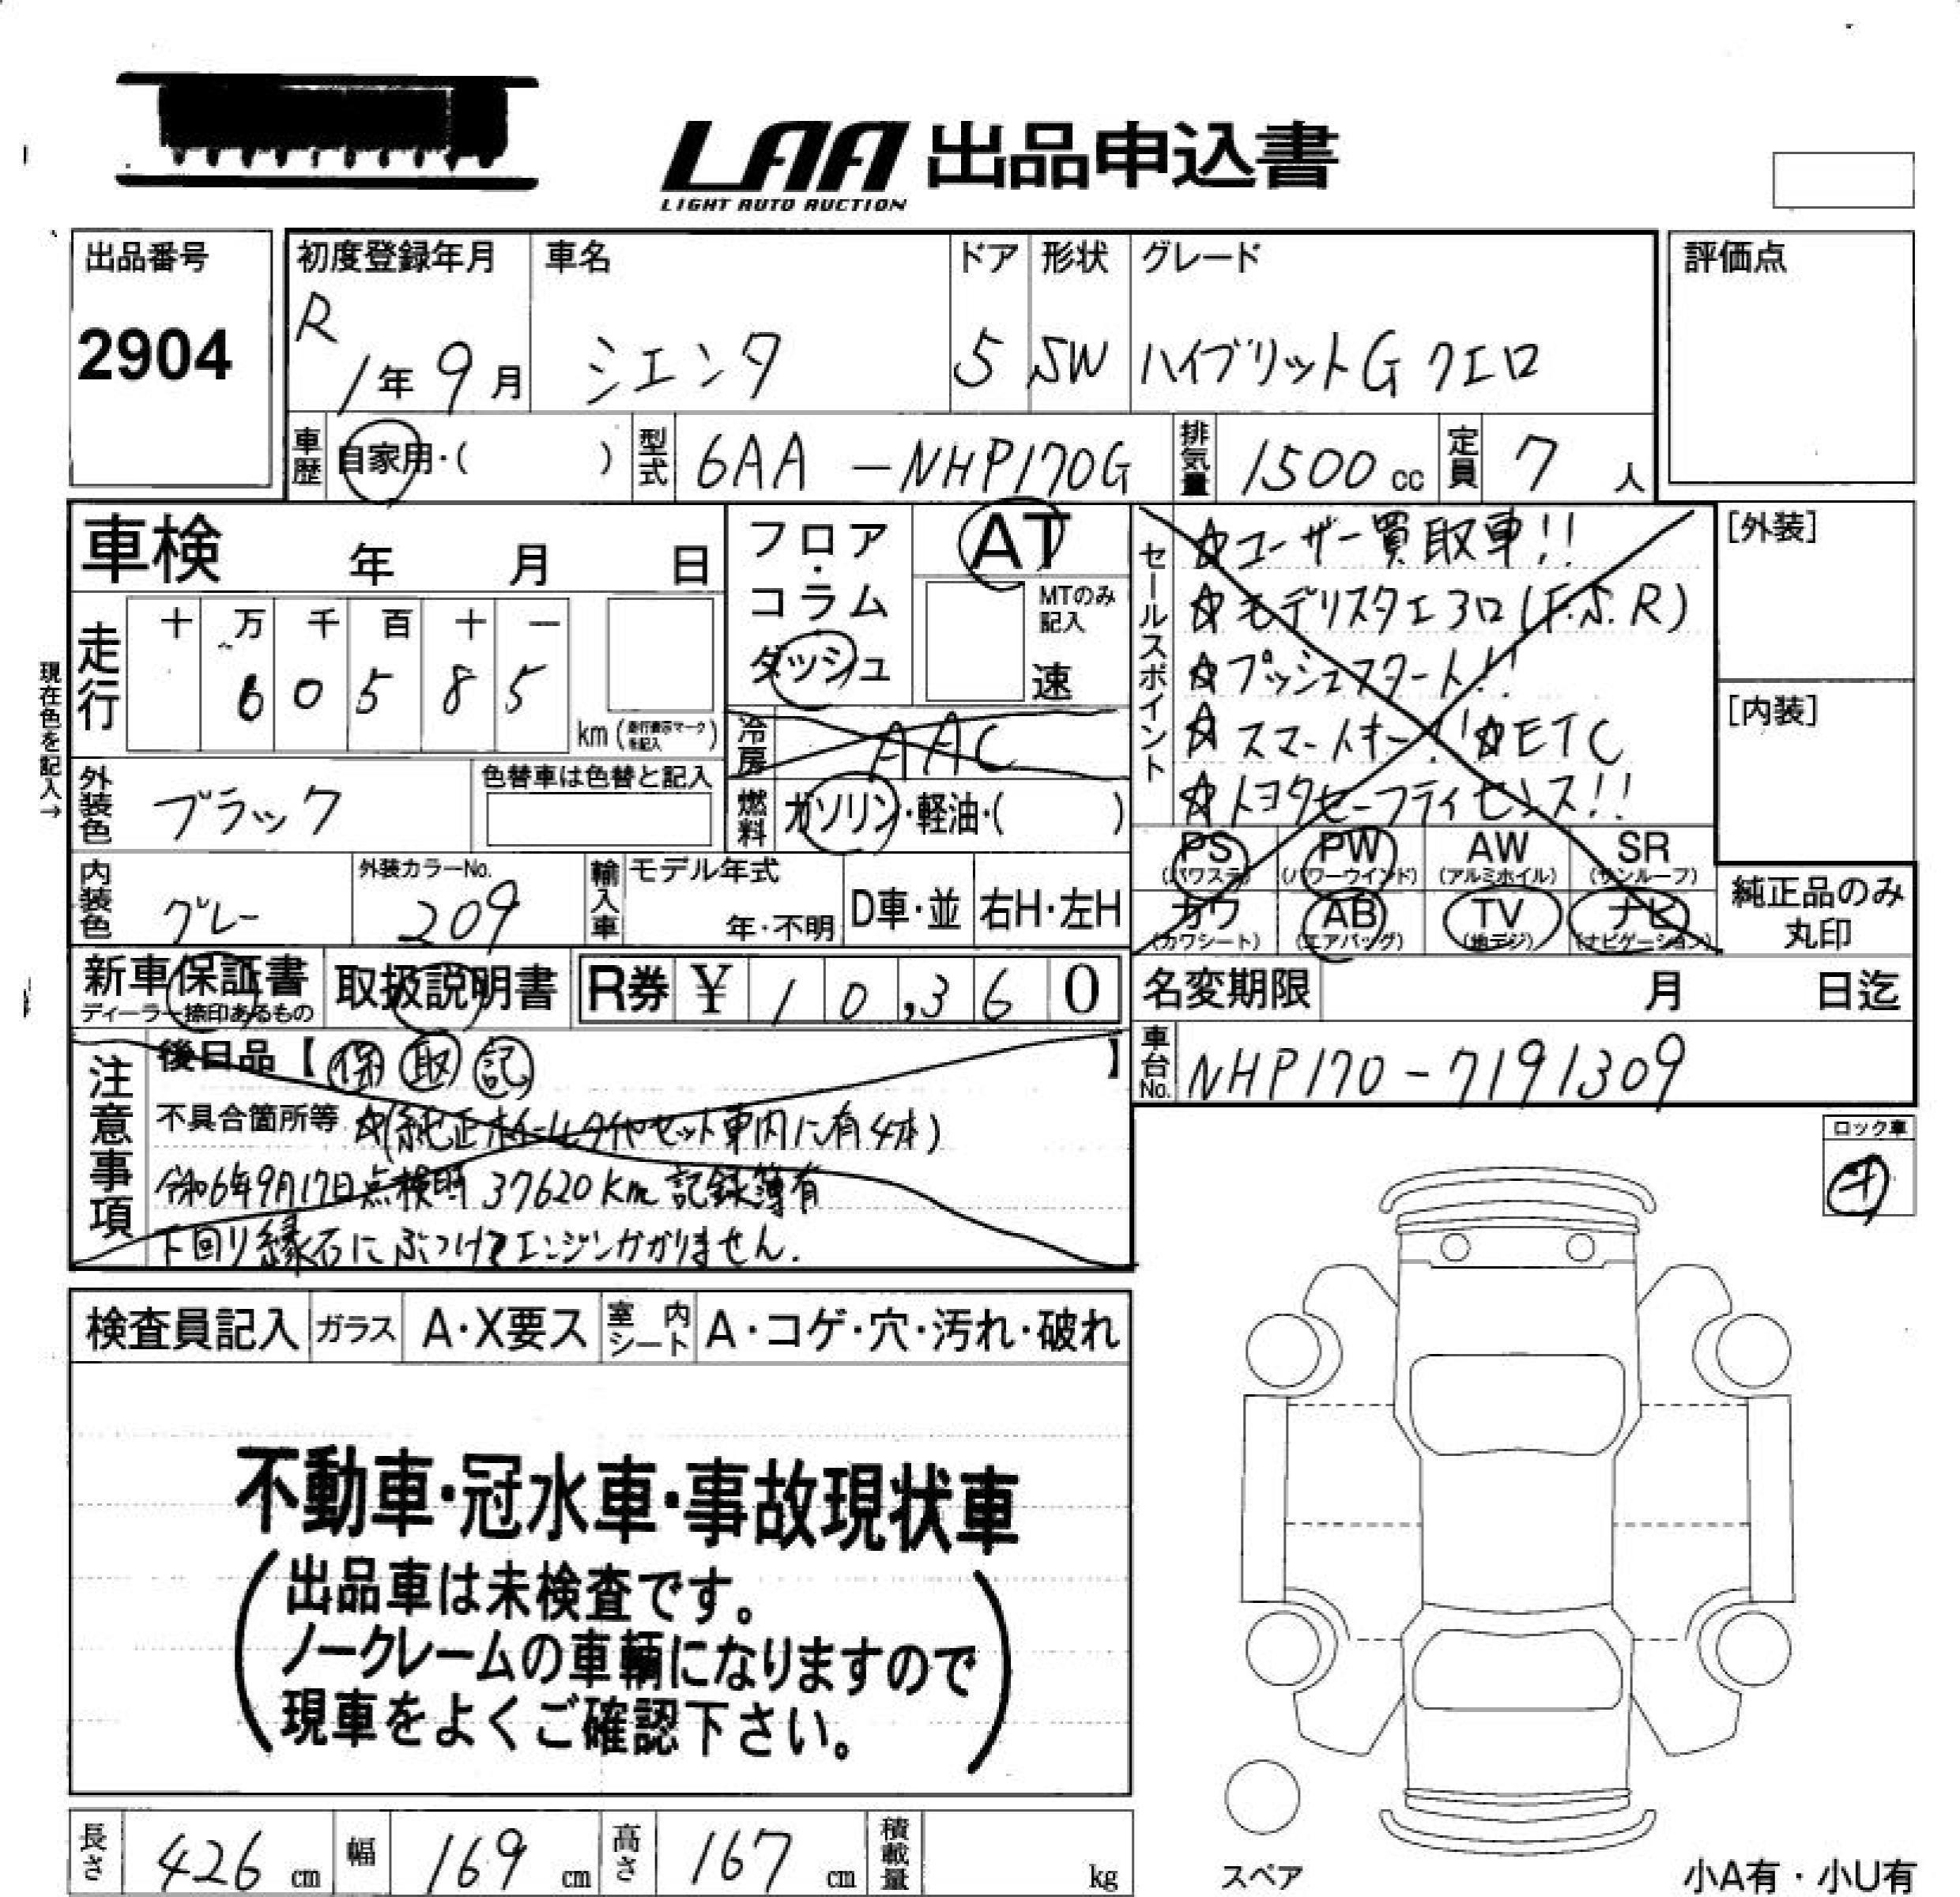 LAA 出品申込書
LIGHT AUTO AUCTION
出品番号
2904
初度登録年月
R 1年 9月
車名
シエンタ
ドア
5
形状
SW
グレード
ハイブリットG クエロ
評価点
車歴 自家用・( )
型式 6AA -NHP170G
排気量 1500 cc
定員 7 人
車検 年 月 日
フロア・コラム ダッシュ
AT
MTのみ記入
速
現在色を記入→
走行
十 万 千 百 十 一
6 0 5 8 5
km (走行表示マークを記入)
冷房 AAC
外装色 ブラック
色替車は色替と記入
燃料 ガソリン・軽油・( )
内装色 グレー
外装カラーNo.
209
輸入車
モデル年式
年・不明
D車・並
右H・左H
新車保証書
ディーラー捺印あるもの
取扱説明書
R券 ¥ 10,360
セールスポイント
☆ユーザー買取車!!
☆モデリスタエヨロ(F.S.R)
☆プッシュスタート!!
☆スマートキー!!☆ETC
☆トヨタセーフティセンス!!
[外装]
[内装]
PS
(パワステ)
PW
(パワーウインド)
AW
(アルミホイル)
SR
(サンルーフ)
カワ
(カワシート)
AB
(エアバッグ)
TV
(地デジ)
ナビ
(ナビゲーション)
純正品のみ
丸印
名変期限 月 日迄
車台No. NHP170-7191309
注意事項
後日品【 保 取 記 】
不具合箇所等 ☆(純正ホイールタイヤセット車内に有4本)
令和6年9月17日点検時 37620km 記録簿有
下回り縁石にぶつけてエンジンかかりません.
ロック車
検査員記入
ガラス A・X要ス
室内シート A・コゲ・穴・汚れ・破れ
不動車・冠水車・事故現状車
(出品車は未検査です。
ノークレームの車輌になりますので
現車をよくご確認下さい。)
長さ 426 cm
幅 169 cm
高さ 167 cm
積載量 kg
スペア
小A有・小U有